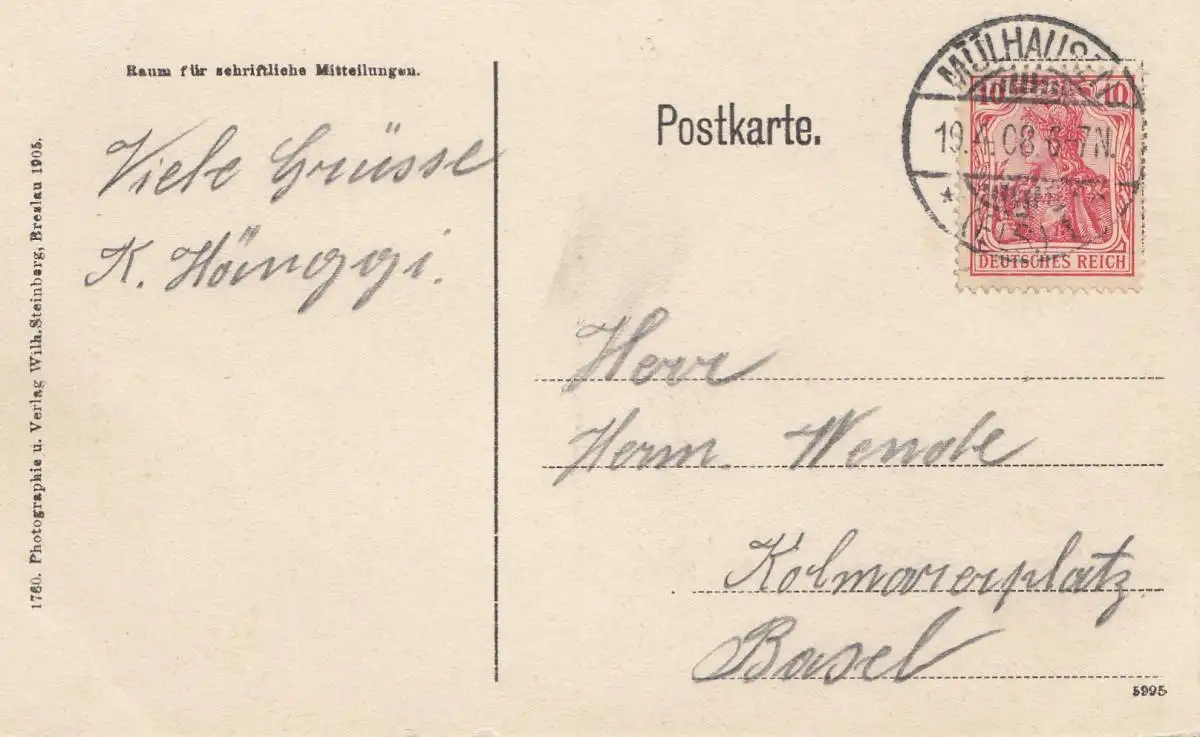 Raum für schriftliche Mitteilungen.
Viele Grüsse
K. Hänggi.
1760. Photographie u. Verlag Wilh. Steinberg, Breslau 1905.
Postkarte.
MÜLHAUSEN
19.4.08.6-7N.
10 10
DEUTSCHES REICH
Herr
Herm. Wende
Kolmarerplatz
Basel
5995